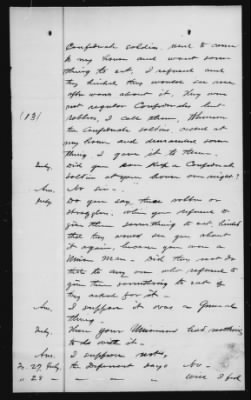 Confederate soldiers, used to come
to my house and want some-
thing to eat, I refused and
they hinted they would see me
after wars about it. They were
not regular Confederates but
(13) robbers, I call them, Whenever
the Confederate soldiers went at
my house and demanded some
thing I gave it to them.
Did you ever a Confederate
soldier at your house over night?
Ans. No sir.
Do you say these robbers or
stragglers, when you refused to
give them something to eat, hinted
that they would see you about
it again, because you were a
Union man - Did they not do
that to any one who refused to
give them something to eat if
they asked for it -
Ans. I suppose it was a general
thing -
Then your Unionism had nothing
to do with it -
Ans. I suppose not,
To 27 the Deponent says No -
" 28 - - - - - I